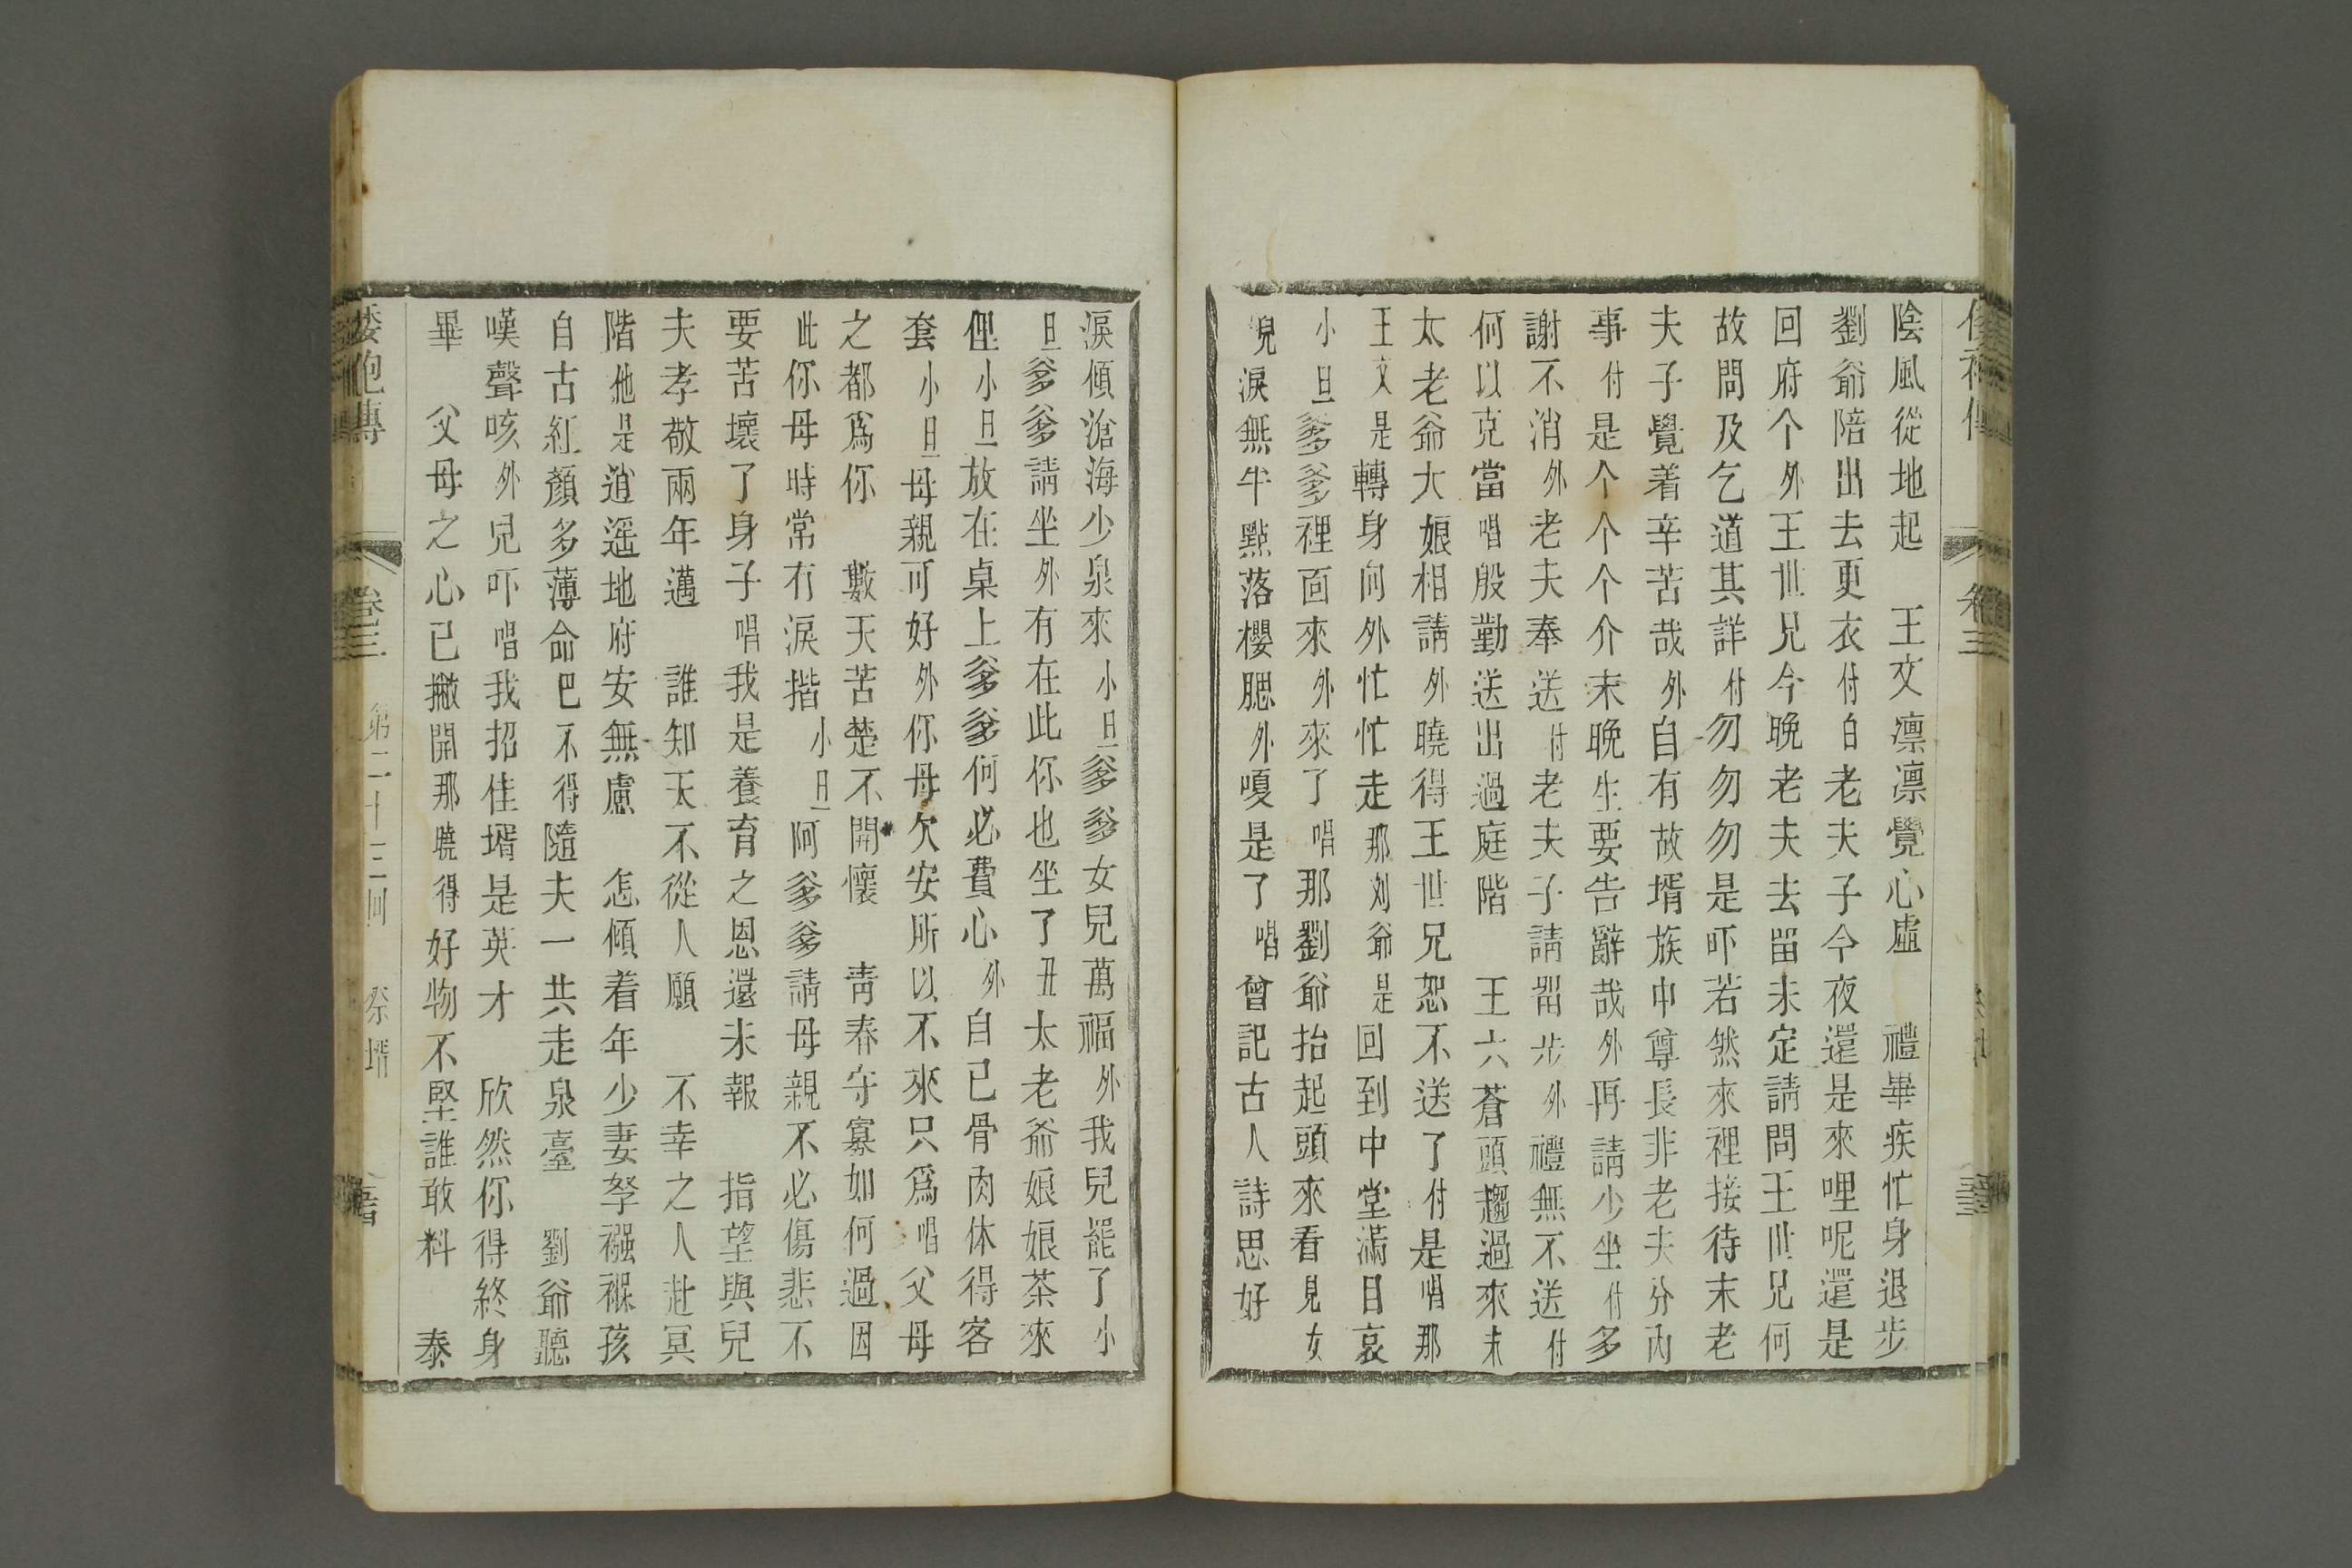 陰風從地起　王文凛凛覺心虛　禮畢疾忙身退步
劉爺陪出去更衣付白老夫子今夜還是來哩呢還是
回府个外王世兄今晚老夫去留未定請問王世兄何
故問及乞道其詳付勿勿勿是吓若然來裡接待末老
夫子覺着辛苦哉外自有故壻族中尊長非老夫分內
事付是个个个介末晚生要告辭哉外再請少坐付多
謝不消外老夫奉送付老夫子請畱步外禮無不送付
何以克當唱殷勤送出過庭階　王六蒼頭趨過來末
太老爺大娘相請外曉得王世兄恕不送了付是唱那
王文是轉身向外忙忙走那刘爺是回到中堂滿目哀
小旦爹爹裡面來外來了唱那劉爺抬起頭來看見女
兒淚無半點落櫻腮外嗄是了唱曾記古人詩思好
淚傾滄海少泉來小旦爹爹女兒萬福外我兒罷了小
旦爹爹請坐外有在此你也坐了丑太老爺娘娘茶來
哩小旦放在桌上爹爹何必費心外自己骨肉休得客
套小旦母親可好外你母欠安所以不來只爲唱父母
之都爲你　數天苦楚不開懷　青春守寡如何過因
此你母時常冇淚揩小旦阿爹爹請母親不必傷悲不
要苦壞了身子唱我是養育之恩還未報　指望與兒
夫孝敬兩年邁　誰知天不從人願　不幸之人赴冥
階他是逍遥地府安無慮　怎傾着年少妻孥襁褓孩
自古紅顏多薄命巴不得隨夫一共走泉臺　劉爺聽
嘆聲咳外兒吓唱我招佳壻是英才　欣然你得終身
畢　父母之心已撇開那曉得好物不堅誰敢料　泰
卷三　第二十三回　祭壻